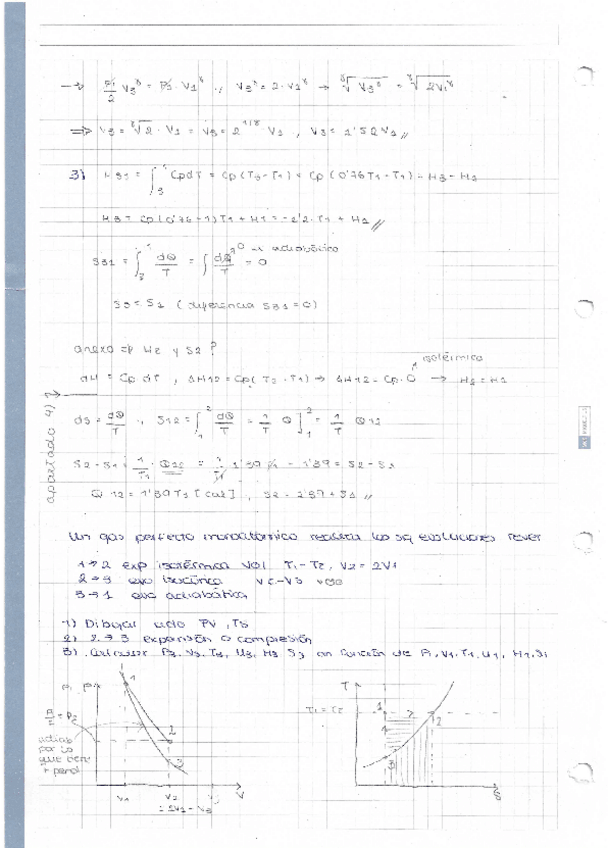 → P1/2 V3^γ = P1 · V1^γ ., V3^γ = 2 · V1^γ → ᵞ√V3^γ = ᵞ√2V1^γ
⇒ V3 = ᵞ√2 · V1 = V3 = 2^1/γ V1 , V3 = 1'52V1 //
3) H31 = ∫ CpdT = Cp (T3-T1) = Cp (0'76T1 - T1) = H3 - H1
H3 = Cp (0'76-1)T1 + H1 = -1'2·T1 + H1 //
0 → adiabático
S31 = ∫ dQ/T = ∫ dQ/T = 0
S3 = S1 ( diferencia S31 = 0)
anexo ⇒ H2 y S2 ?
isotérmico
dH = Cp dT , ΔH12 = Cp( T2 - T1) → ΔH12 = Cp·0 → H2 = H1
apartado 4)
dS = dQ/T ., S12 = ∫ dQ/T = 1/T Q ] = 1/T Q12
S2 - S1 = 1/T1 · Q12 = 1/T1 1'39 T1 = 1'39 = S2 - S1
Q12 = 1'39T1 [cal] , S2 = 1'39 + S1 //
Un gas perfecto monoatómico realiza las sig evoluciones rever
1→2 exp isotérmica T1 = T2, V2 = 2V1
2→3 evo isocórica V2 = V3
3→1 evo adiabática
1) Dibujar ciclo PV , TS
2) 2→3 expansión o compresión
3) Calcular P3, V3, T3, U3, H3 S3 en función de P1, V1, T1, U1, H1, S1
P1 P
1
P1/2 = P2
2
adiab
por lo
que tiene
+ pend
3
V1 V2 V
= 2V1 = V3
T
T1 = T2
1
2
3
S